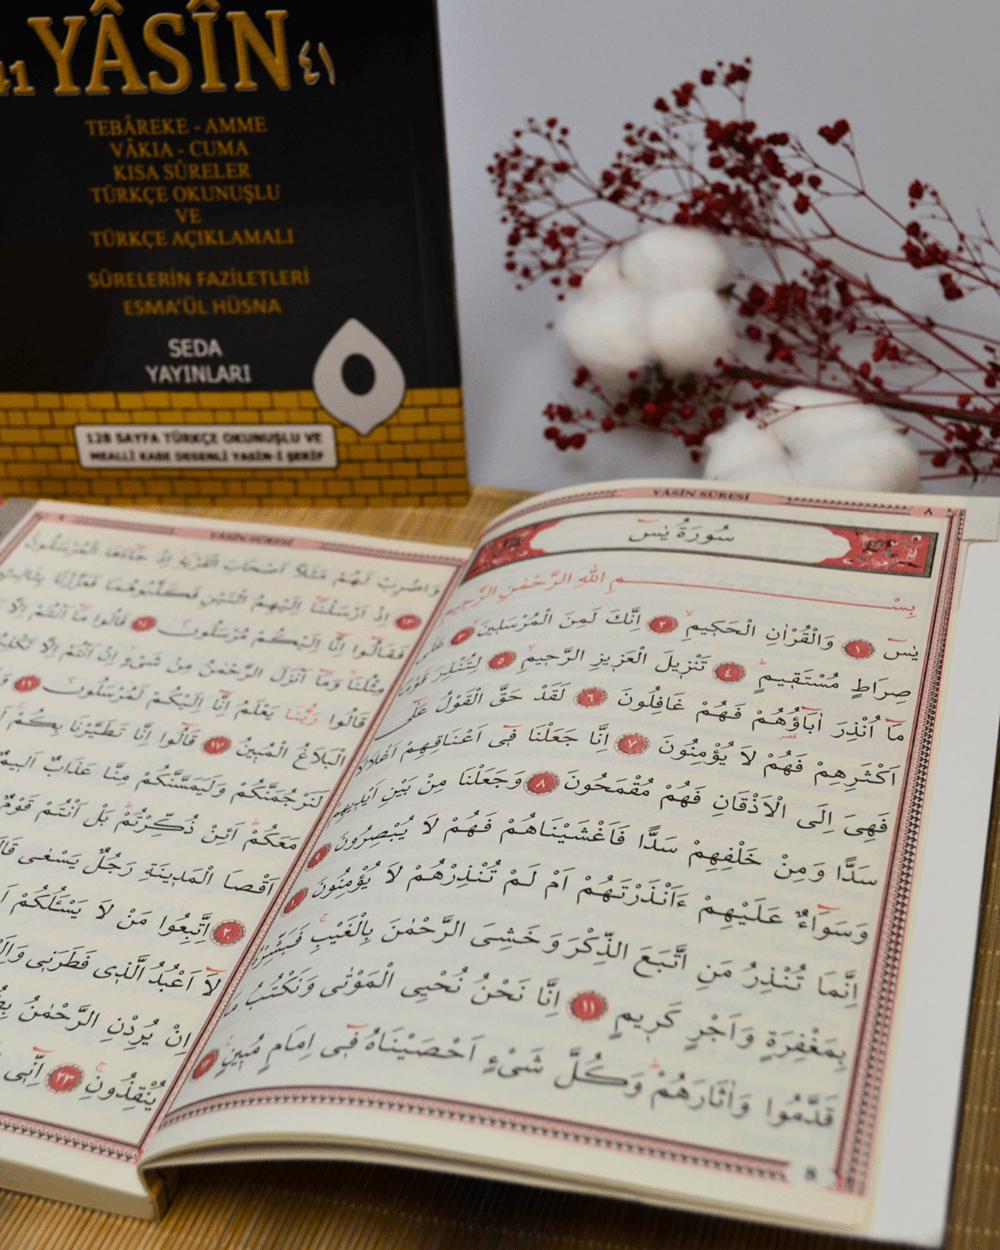 41 YÂSÎN ٤١
TEBÂREKE - AMME
VÂKIA - CUMA
KISA SÛRELER
TÜRKÇE OKUNUŞLU
VE
TÜRKÇE AÇIKLAMALI
SÛRELERİN FAZİLETLERİ
ESMA'ÜL HÜSNA
SEDA
YAYINLARI
128 SAYFA TÜRKÇE OKUNUŞLU VE
MEALLİ KABE DESENLİ YASİN-İ ŞERİF
YÂSÎN SÛRESİ ٨
سُورَةُ يٰسٓ
بِسْــــمِ اللّٰهِ الرَّحْمٰنِ الرَّحٖيمِ
يٰسٓ ١ وَالْقُرْاٰنِ الْحَكٖيمِۙ ٢ اِنَّكَ لَمِنَ الْمُرْسَلٖينَۙ ٣ عَلٰى
صِرَاطٍ مُسْتَقٖيمٍۜ ٤ تَنْزٖيلَ الْعَزٖيزِ الرَّحٖيمِۙ ٥ لِتُنْذِرَ قَوْمًا
مَٓا اُنْذِرَ اٰبَٓاؤُ۬هُمْ فَهُمْ غَافِلُونَ ٦ لَقَدْ حَقَّ الْقَوْلُ عَلٰٓى
اَكْثَرِهِمْ فَهُمْ لَا يُؤْمِنُونَ ٧ اِنَّا جَعَلْنَا فٖٓى اَعْنَاقِهِمْ اَغْلَالًا
فَهِىَ اِلَى الْاَذْقَانِ فَهُمْ مُقْمَحُونَ ٨ وَجَعَلْنَا مِنْ بَيْنِ اَيْدٖيهِمْ
سَدًّا وَمِنْ خَلْفِهِمْ سَدًّا فَاَغْشَيْنَاهُمْ فَهُمْ لَا يُبْصِرُونَ ٩
وَسَوَٓاءٌ عَلَيْهِمْ ءَاَنْذَرْتَهُمْ اَمْ لَمْ تُنْذِرْهُمْ لَا يُؤْمِنُونَ ١٠
اِنَّمَا تُنْذِرُ مَنِ اتَّبَعَ الذِّكْرَ وَخَشِىَ الرَّحْمٰنَ بِالْغَيْبِۚ فَبَشِّرْهُ
بِمَغْفِرَةٍ وَاَجْرٍ كَرٖيمٍ ١١ اِنَّا نَحْنُ نُحْيِى الْمَوْتٰى وَنَكْتُبُ مَا
قَدَّمُوا وَاٰثَارَهُمْۜ وَكُلَّ شَىْءٍ اَحْصَيْنَاهُ فٖٓى اِمَامٍ مُبٖينٍ ١٢
8
YÂSÎN SÛRESİ
وَاضْرِبْ لَهُمْ مَثَلًا اَصْحَابَ الْقَرْيَةِۢ اِذْ جَٓاءَهَا الْمُرْسَلُونَ
١٣ اِذْ اَرْسَلْنَٓا اِلَيْهِمُ اثْنَيْنِ فَكَذَّبُوهُمَا فَعَزَّزْنَا بِثَالِثٍ
فَقَالُٓوا اِنَّٓا اِلَيْكُمْ مُرْسَلُونَ ١٤ قَالُوا مَٓا اَنْتُمْ اِلَّا
مِثْلُنَا وَمَٓا اَنْزَلَ الرَّحْمٰنُ مِنْ شَىْءٍ اِنْ اَنْتُمْ اِلَّا
قَالُوا رَبُّنَا يَعْلَمُ اِنَّٓا اِلَيْكُمْ لَمُرْسَلُونَ ١٦
الْبَلَاغُ الْمُبٖينُ ١٧ قَالُٓوا اِنَّا تَطَيَّرْنَا بِكُمْۚ
لَنَرْجُمَنَّكُمْ وَلَيَمَسَّنَّكُمْ مِنَّا عَذَابٌ اَلٖيمٌ
مَعَكُمْۜ اَئِنْ ذُكِّرْتُمْۜ بَلْ اَنْتُمْ قَوْمٌ
اَقْصَا الْمَدٖينَةِ رَجُلٌ يَسْعٰى
٢٠ اِتَّبِعُوا مَنْ لَا يَسْـَٔلُكُمْ
لَٓا اَعْبُدُ الَّذٖى فَطَرَنٖى
اِنْ يُرِدْنِ الرَّحْمٰنُ
يُنْقِذُونِۚ ٢٣ اِنّٖٓى